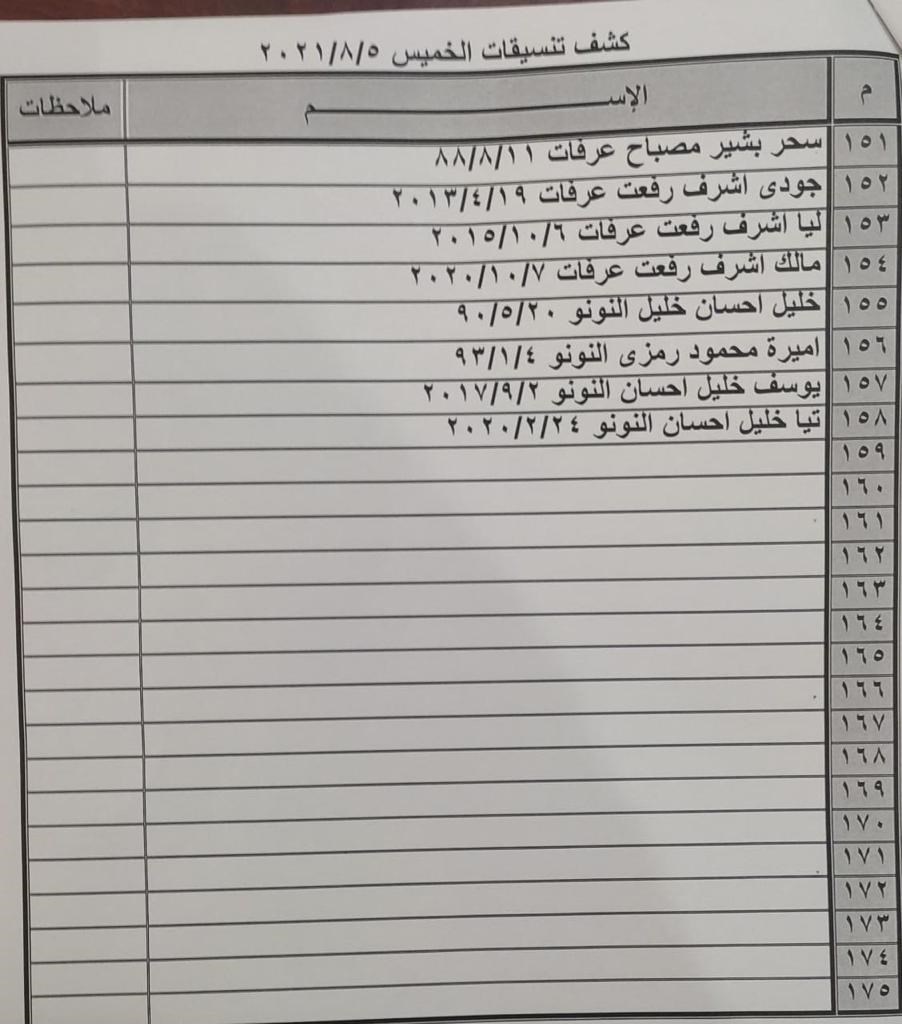 كشف تنسيقات الخميس ٢٠٢١/٨/٥
م الإســـــــم ملاحظات
١٥١ سحر بشير مصباح عرفات ٨٨/٨/١١
١٥٢ جودى اشرف رفعت عرفات ٢٠١٣/٤/١٩
١٥٣ ليا اشرف رفعت عرفات ٢٠١٥/١٠/٦
١٥٤ مالك اشرف رفعت عرفات ٢٠٢٠/١٠/٧
١٥٥ خليل احسان خليل النونو ٩٠/٥/٢٠
١٥٦ اميرة محمود رمزى النونو ٩٣/١/٤
١٥٧ يوسف خليل احسان النونو ٢٠١٧/٩/٢
١٥٨ تيا خليل احسان النونو ٢٠٢٠/٢/٢٤
١٥٩
١٦٠
١٦١
١٦٢
١٦٣
١٦٤
١٦٥
١٦٦
١٦٧
١٦٨
١٦٩
١٧٠
١٧١
١٧٢
١٧٣
١٧٤
١٧٥